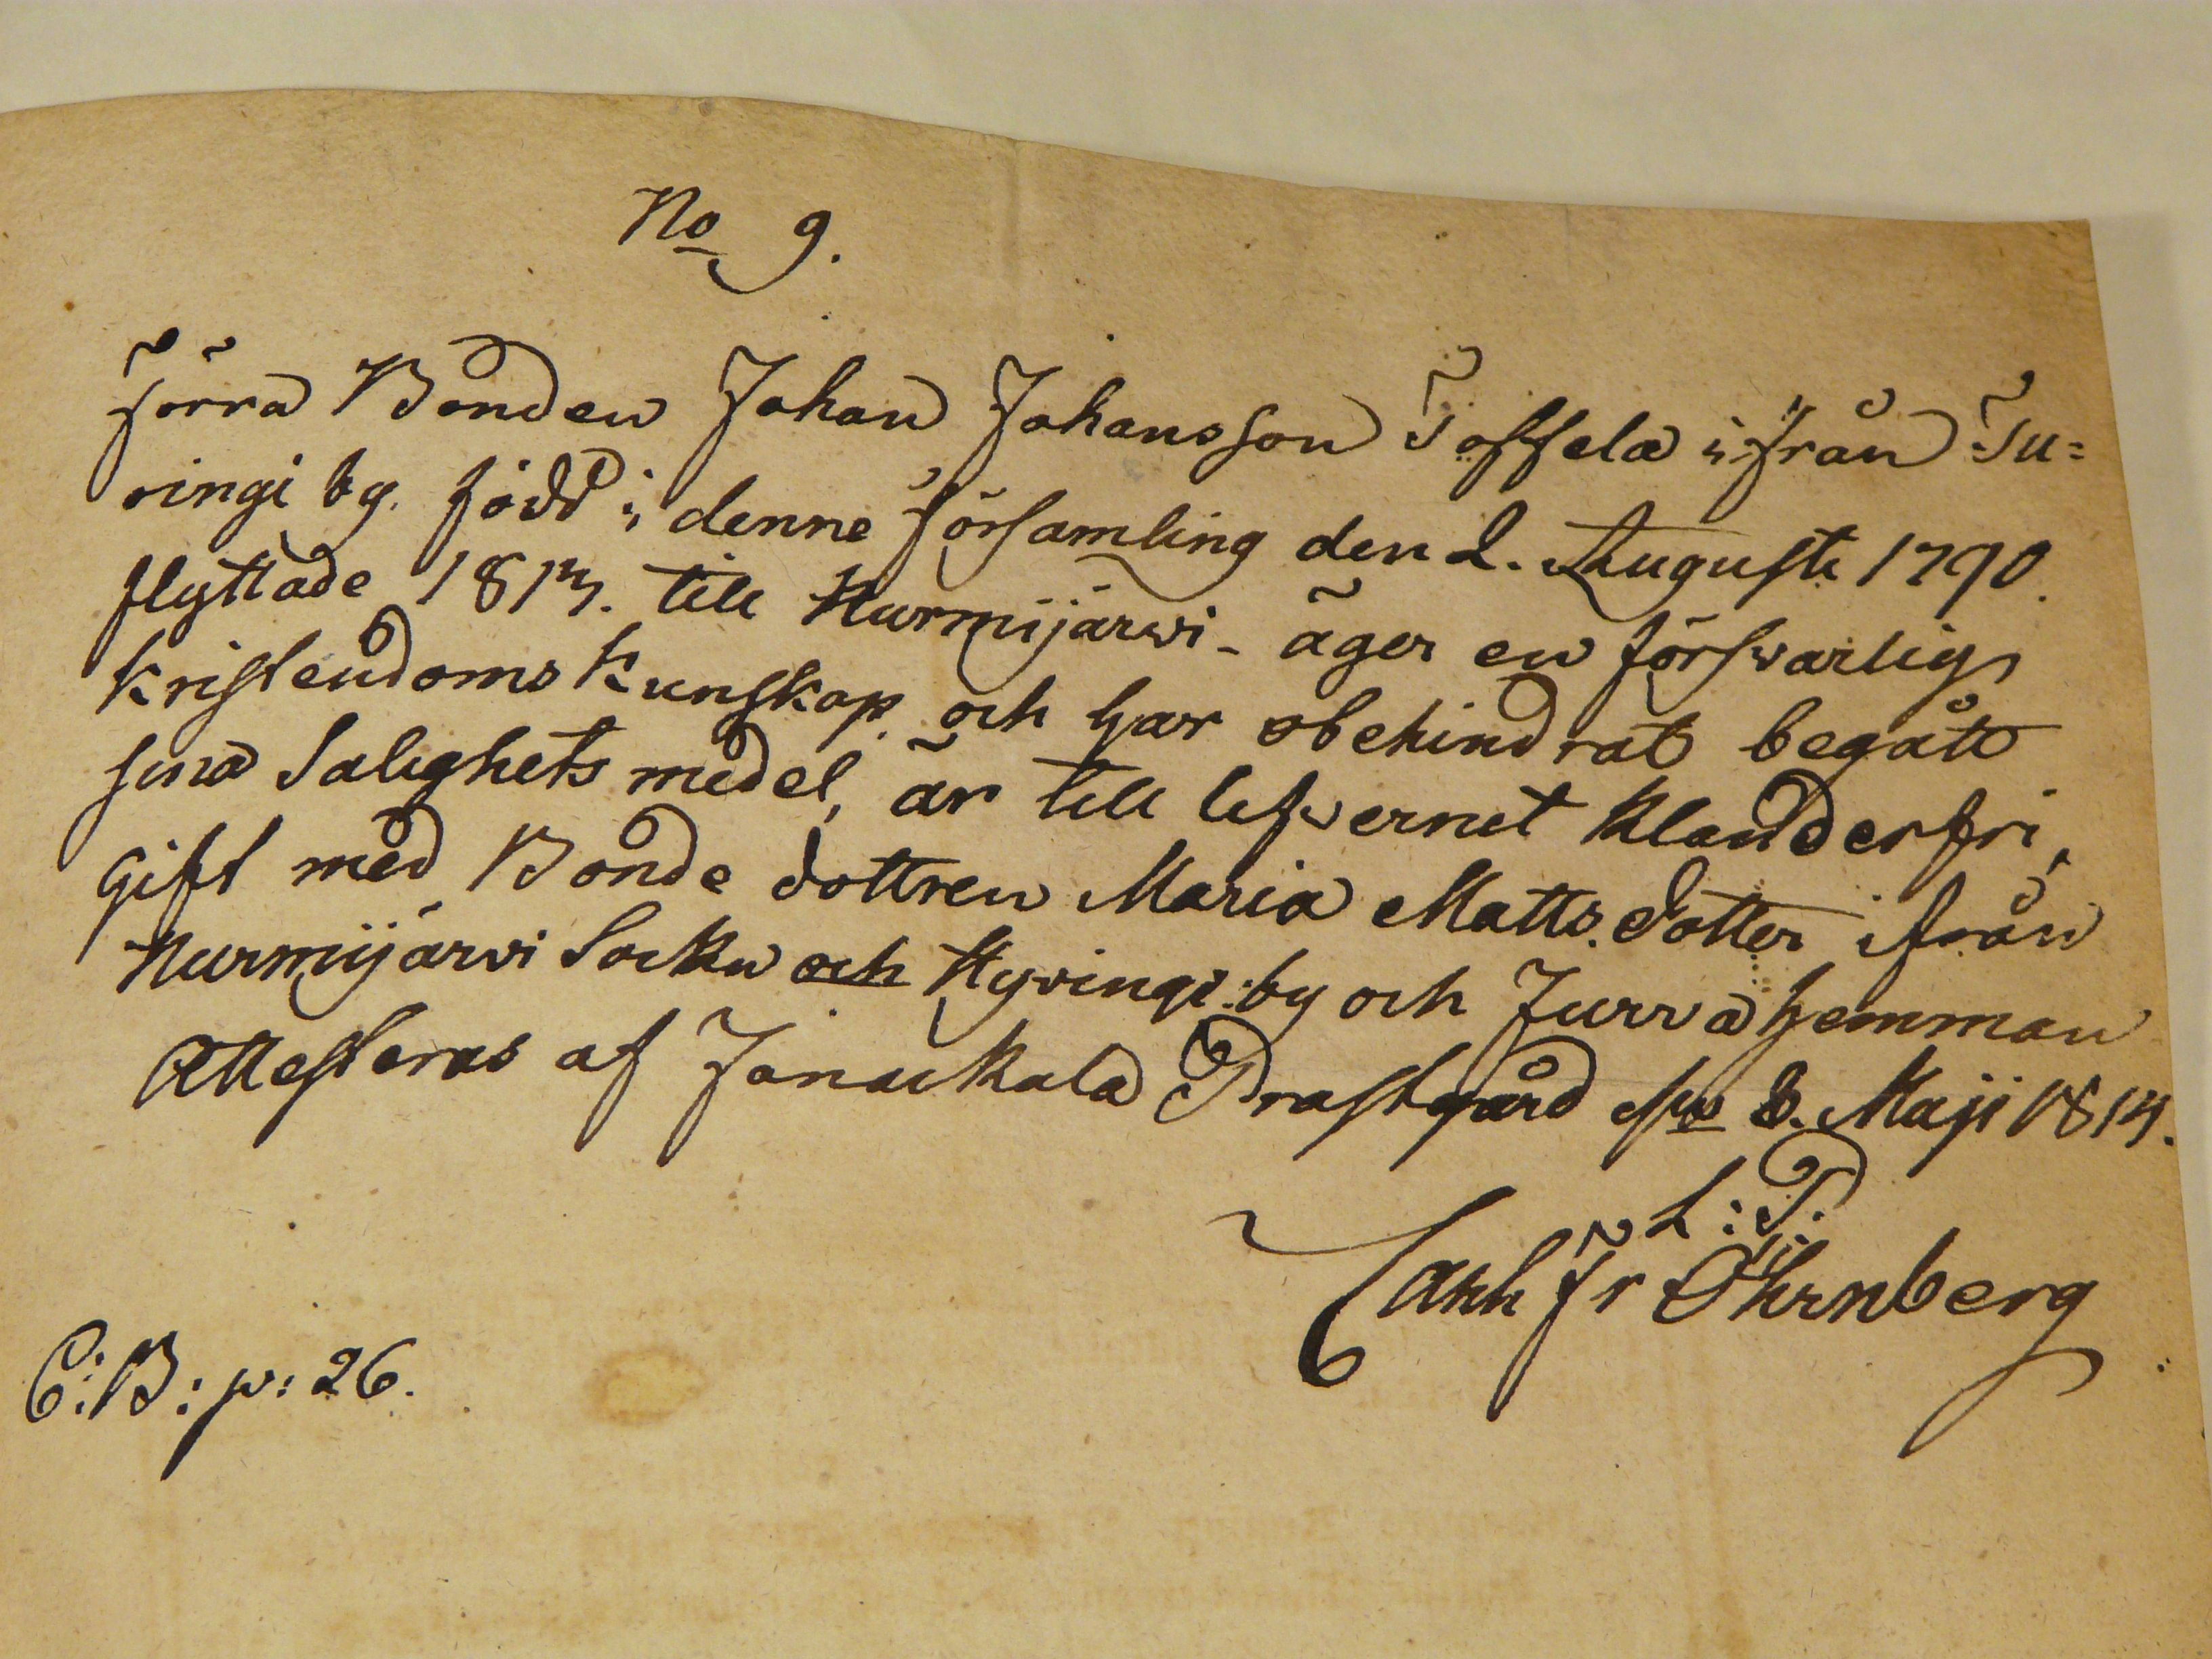 No 9.
Förra Bonden Johan Johansson Toffela ifrån Tu=
ringi by. född i denne församling den 2. Augusti 1790.
flyttade 1813. till Nurmijärvi - äger en försvarlig
Kristendoms Kunskap och har obehindrat begått
sina Salighets medel, är till lefvernet klanderfri,
gift med Bonde dottren Maria Matts. Dotter ifrån
Nurmijärvi Sockn och Hyvinge: by och Jurva hemman
Attesteras af Janackala Prastgård den 8. Maji 1814.
L: P.
Carl Fr Öhrnberg
C: B: p: 26.